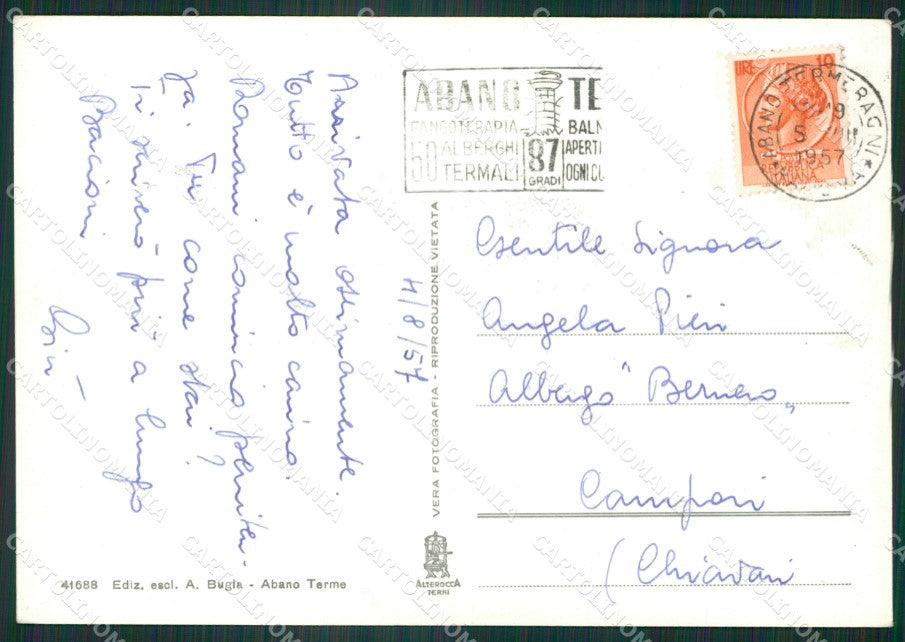 ABANO TE
FANGOTERAPIA
BALN
50 ALBERGHI
TERMALI
87
GRADI
APERTI
OGNI
LIRE 10
ABANO TERME
5
1957
Arrivata ottimamente.
Tutto è molto carino.
Domani comincio peniten-
za. Tu come stai?
Ti scriverò più a lungo
Bacioni
4/8/57
VERA FOTOGRAFIA - RIPRODUZIONE VIETATA
Gentile Signora
Angela Pieri
Albergo "Bernero"
(Chiavari
41688 Ediz. escl. A. Bugla - Abano Terme
ALTEROCCA
TERNI
CARTOLINOMANIA